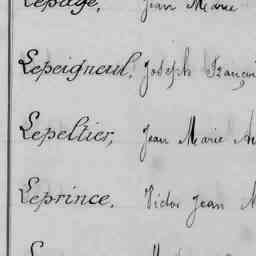 Lepage, Jean Marie
Lepeigneul, Joseph Françoi
Lepeltier, Jean Marie
Leprince, Victor Jean